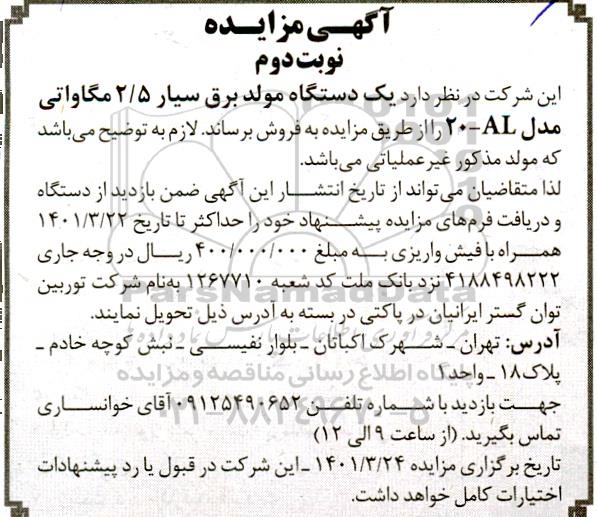 آگهی مزایده
نوبت دوم
این شرکت در نظر دارد یک دستگاه مولد برق سیار ۲/۵ مگاواتی
مدل ۲۰-AL را از طریق مزایده به فروش برساند. لازم به توضیح می‌باشد
که مولد مذکور غیرعملیاتی می‌باشد.
لذا متقاضیان می‌تواند از تاریخ انتشار این آگهی ضمن بازدید از دستگاه
و دریافت فرم‌های مزایده پیشنهاد خود را حداکثر تا تاریخ ۱۴۰۱/۳/۲۲
همراه با فیش واریزی به مبلغ ۴۰۰/۰۰۰/۰۰۰ ریال در وجه جاری
۴۱۸۸۴۹۸۲۲۲ نزد بانک ملت کد شعبه ۱۲۶۷۷۱۰ به‌نام شرکت توربین
توان گستر ایرانیان در پاکتی در بسته به آدرس ذیل تحویل نمایند.
آدرس: تهران ـ شهرک اکباتان ـ بلوار نفیسی ـ نبش کوچه خادم ـ
پلاک ۱۸ ـ واحد ۱
جهت بازدید با شماره تلفن ۰۹۱۲۵۴۹۰۶۵۲ آقای خوانساری
تماس بگیرید. (از ساعت ۹ الی ۱۲)
تاریخ برگزاری مزایده ۱۴۰۱/۳/۲۴ ـ این شرکت در قبول یا رد پیشنهادات
اختیارات کامل خواهد داشت.
ParsNamadData
پایگاه اطلاع رسانی مناقصه و مزایده